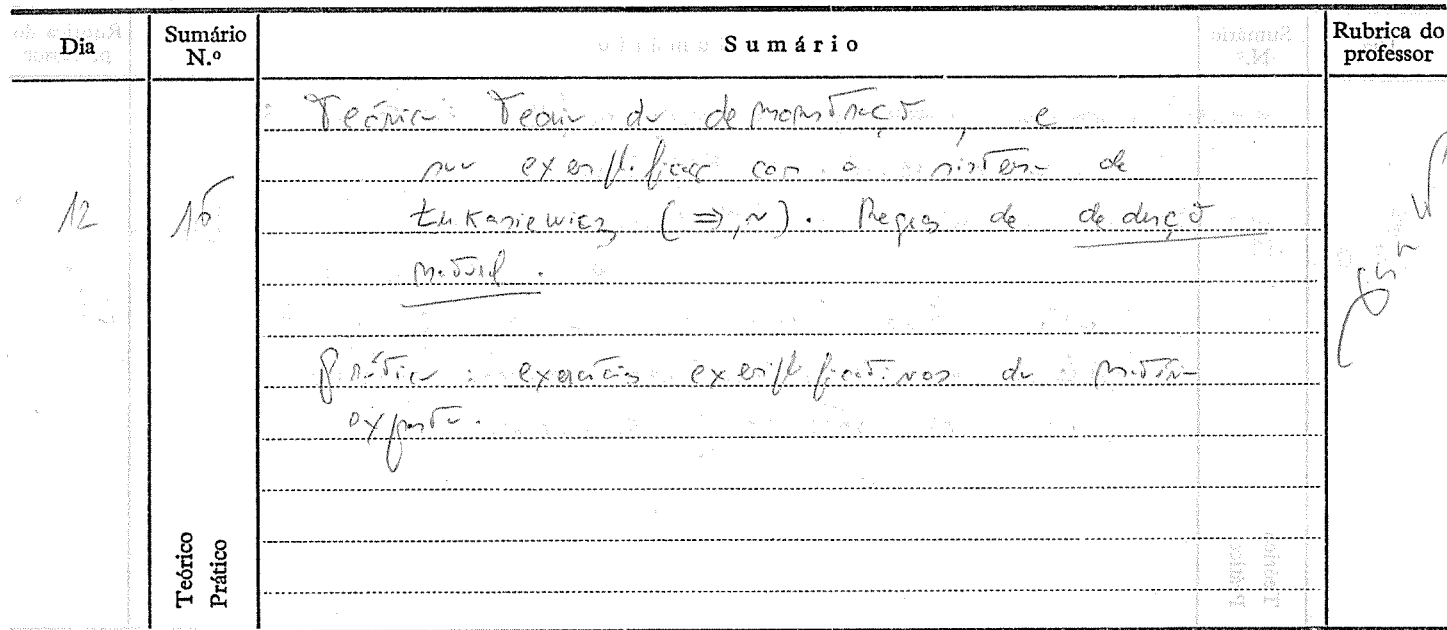 Dia
Sumário N.º
Sumário
Rubrica do professor
12
Teórica: Teoria da demonstração, e
sua exemplificação com o sistema de
Łukasiewicz (⇒, ~). Regras de dedução
natural.
Prática: exercícios exemplificativos da matéria
exposta.
Teórico
Prático